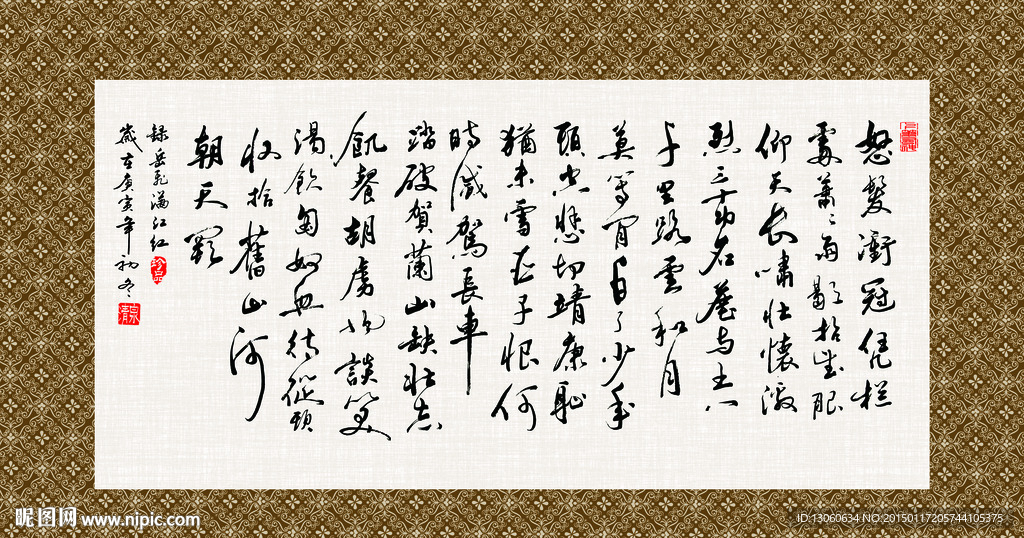 怒髮衝冠凭栏
處蕭〻雨歇抬望眼
仰天长嘯壮懷激
烈三十功名塵与土八
千里路雲和月
莫等闲白了少年
頭空悲切靖康恥
猶未雪臣子恨何
時滅駕長車
踏破賀蘭山缺壮志
飢餐胡虜肉談笑
渴飲匈奴血待從頭
收拾舊山河
朝天闕
錄岳飛滿江红
歲在庚寅年初冬
昵图网 www.nipic.com
ID:13060634 NO:20150117205744105375